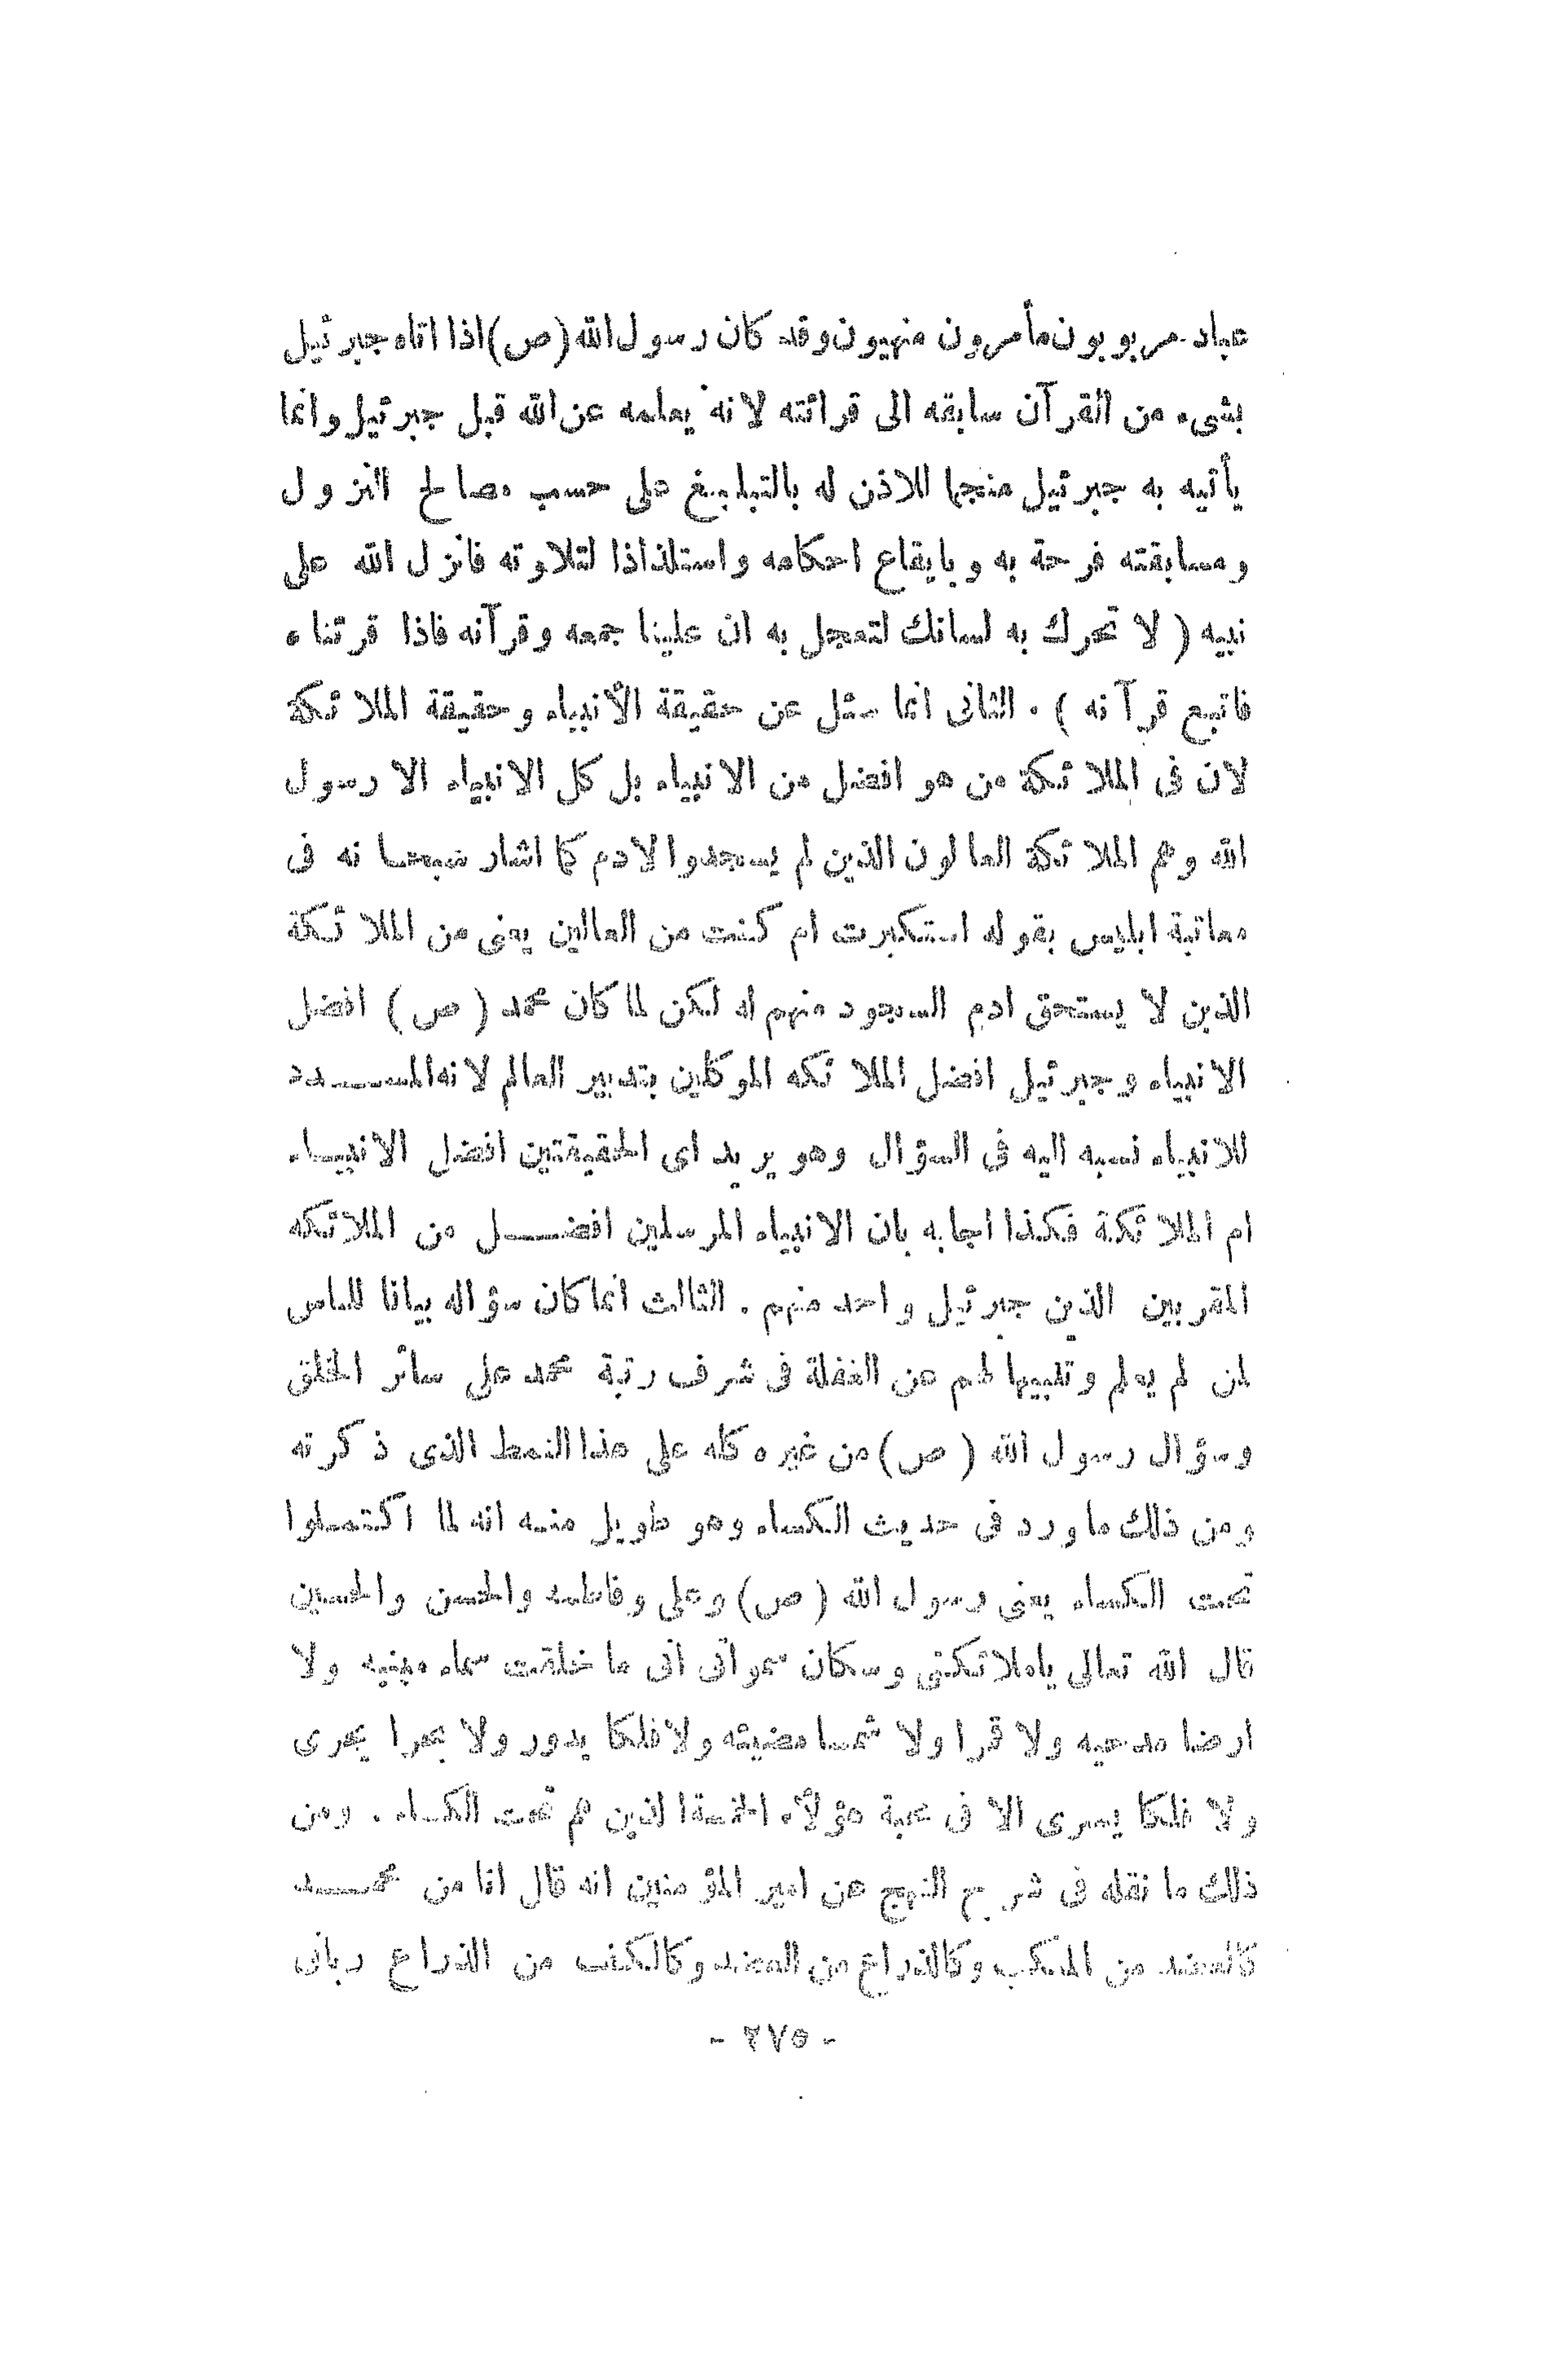 عباد مربوبون مأمرون منهيون وقد كان رسول الله (ص) اذا اتاه جبرئيل
بشىء من القرآن سابقه الى قرائته لانه يعلمه عن الله قبل جبرئيل وانما
يأتيه به جبرئيل منجما للاذن له بالتبليغ على حسب مصالح النزول
ومسابقته فرحة به وبايقاع احكامه واستلذاذا لتلاوته فانزل الله على
نبيه ( لا تحرك به لسانك لتعجل به ان علينا جمعه وقرآنه فاذا قرئناه
فاتبع قرآنه ) . الثانى انما سئل عن حقيقة الأنبياء وحقيقة الملائكة
لان فى الملائكة من هو افضل من الانبياء بل كل الانبياء الا رسول
الله وهم الملائكة العالون الذين لم يسجدوا لادم كما اشار سبحانه فى
معاتبة ابليس بقوله استكبرت ام كنت من العالين يعنى من الملائكة
الذين لا يستحق ادم السجود منهم له لكن لما كان محمد ( ص ) افضل
الانبياء وجبرئيل افضل الملائكه الموكلين بتدبير العالم لانه المسدد
للانبياء نسبه اليه فى السؤال وهو يريد اى الحقيقتين افضل الانبياء
ام الملائكة فكذا اجابه بان الانبياء المرسلين افضل من الملائكه
المقربين الذين جبرئيل واحد منهم . الثالث انما كان سؤاله بيانا للناس
لمن لم يعلم وتنبيها لهم عن الغفلة فى شرف رتبة محمد على سائر الخلق
وسؤال رسول الله ( ص ) من غيره كله على هذا النمط الذى ذكرته
ومن ذلك ما ورد فى حديث الكساء وهو طويل منه انه لما اكتملوا
تحت الكساء يعنى رسول الله ( ص ) وعلى وفاطمه والحسن والحسين
قال الله تعالى ياملائكتى وسكان سمواتى انى ما خلقت سماء مبنيه ولا
ارضا مدحيه ولا قمرا ولا شمسا مضيئه ولا فلكا يدور ولا بحرا يجرى
ولا فلكا يسرى الا فى محبة هؤلاء الخمسة الذين هم تحت الكساء . ومن
ذلك ما نقله فى شرح النهج عن امير المؤمنين انه قال انا من محمد
كالعضد من المنكب وكالذراع من العضد وكالكف من الذراع ربانى
- ٢٧٥ -